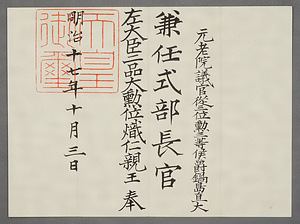 元老院議官従三位勲三等侯爵鍋島直大
兼任式部長官
左大臣二品大勲位熾仁親王奉
明治十七年十月三日
天皇御璽